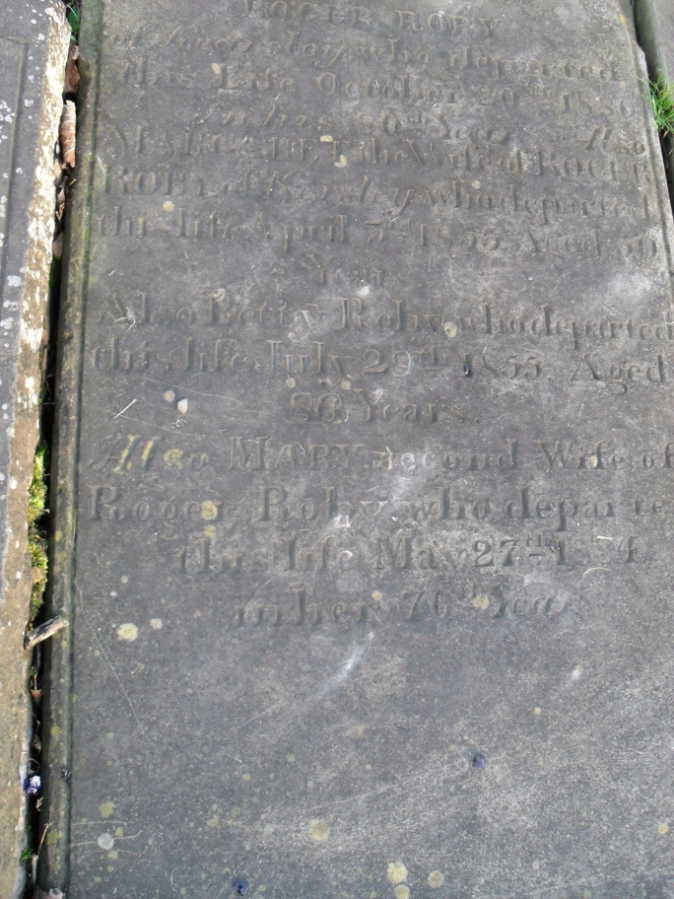 ROGER ROBY
who departed
this Life October 20th
In his Year Also
MARGARET the Wife of ROGER
ROBY of who departed
this life April Aged
Years
Also Betty Roby who departed
this life July 29th 1855 Aged
86 Years
Also MARY second Wife of
Roger Roby who departe
this life May 27th
in her 76th Year